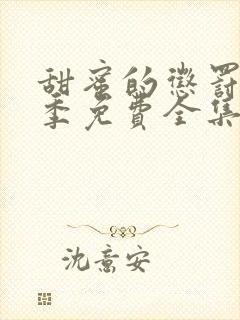 甜蜜的惩罚
季免费全集
沈意安